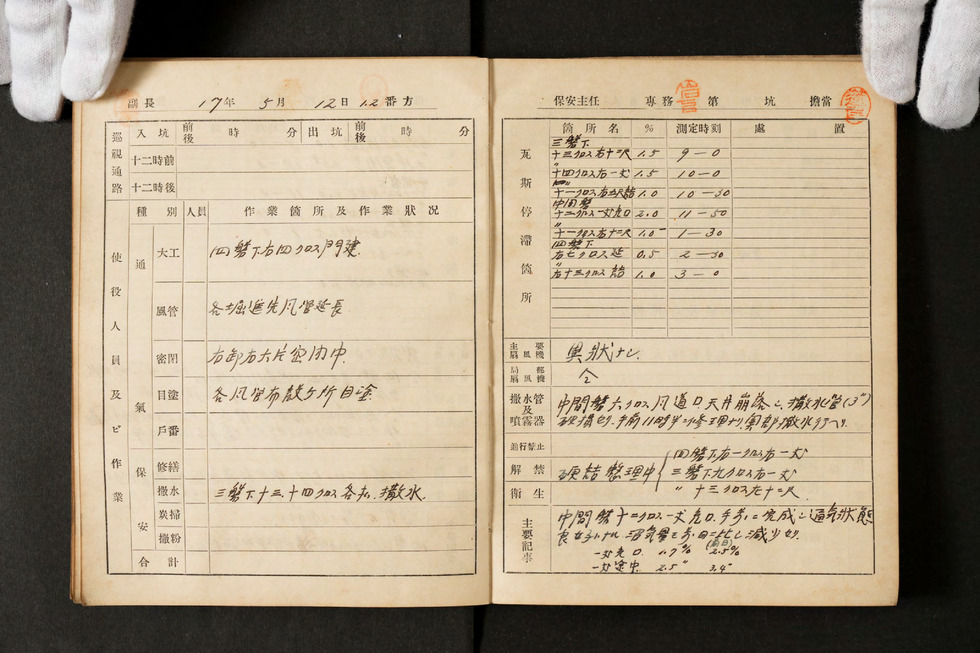 副長 17年 5月 12日 1.2番方
巡視通路 入坑 前後 時 分 出坑 前後 時 分
十二時前
十二時後
使役人員及ビ作業
種別 人員 作業箇所及作業状況
通氣保安
大工 四盤下右四クロス門建
風管 各堀進先風管延長
密閉 右卸右六片密閉中
目塗 各風管布設ヶ所目塗
戸番
修繕
撒水 三盤下十三、十四クロス各払、撒水
炭掃
撒粉
合計
保安主任 専務 第 坑 擔當
瓦斯停滞箇所
箇所名 % 測定時刻 處置
三盤下
十三クロス右十三尺 1.5 9-0
〃
十四クロス右一丈 1.5 10-0
十一クロス右 1.0 10-30
中間盤
十二クロス一丈 2.0 11-50
〃
十一クロス右十三尺 1.0 1-30
四盤下
右七クロス延 0.5 2-30
〃
右十三クロス詰 1.0 3-0
主要扇風機 異状ナシ
局部扇風機 仝
撒水管及噴霧器 中間盤六クロス風道口、天井崩落シ、撒水管(3")
破損セリ、午前11時半ニ修理ナリ、奥部撒水行ヘリ
通行禁止
解禁 硬結整理中
四盤下右一クロス右一丈
三盤下九クロス右一丈
〃 十三クロス左十二尺
衛生
主要記事
中間盤十二クロス一丈 完成シ通気状態
良好トナル 沼気量モ前日ニ比シ減少セリ
(前日)
1.7% 2.5%
途中 2.5〃 3.4〃